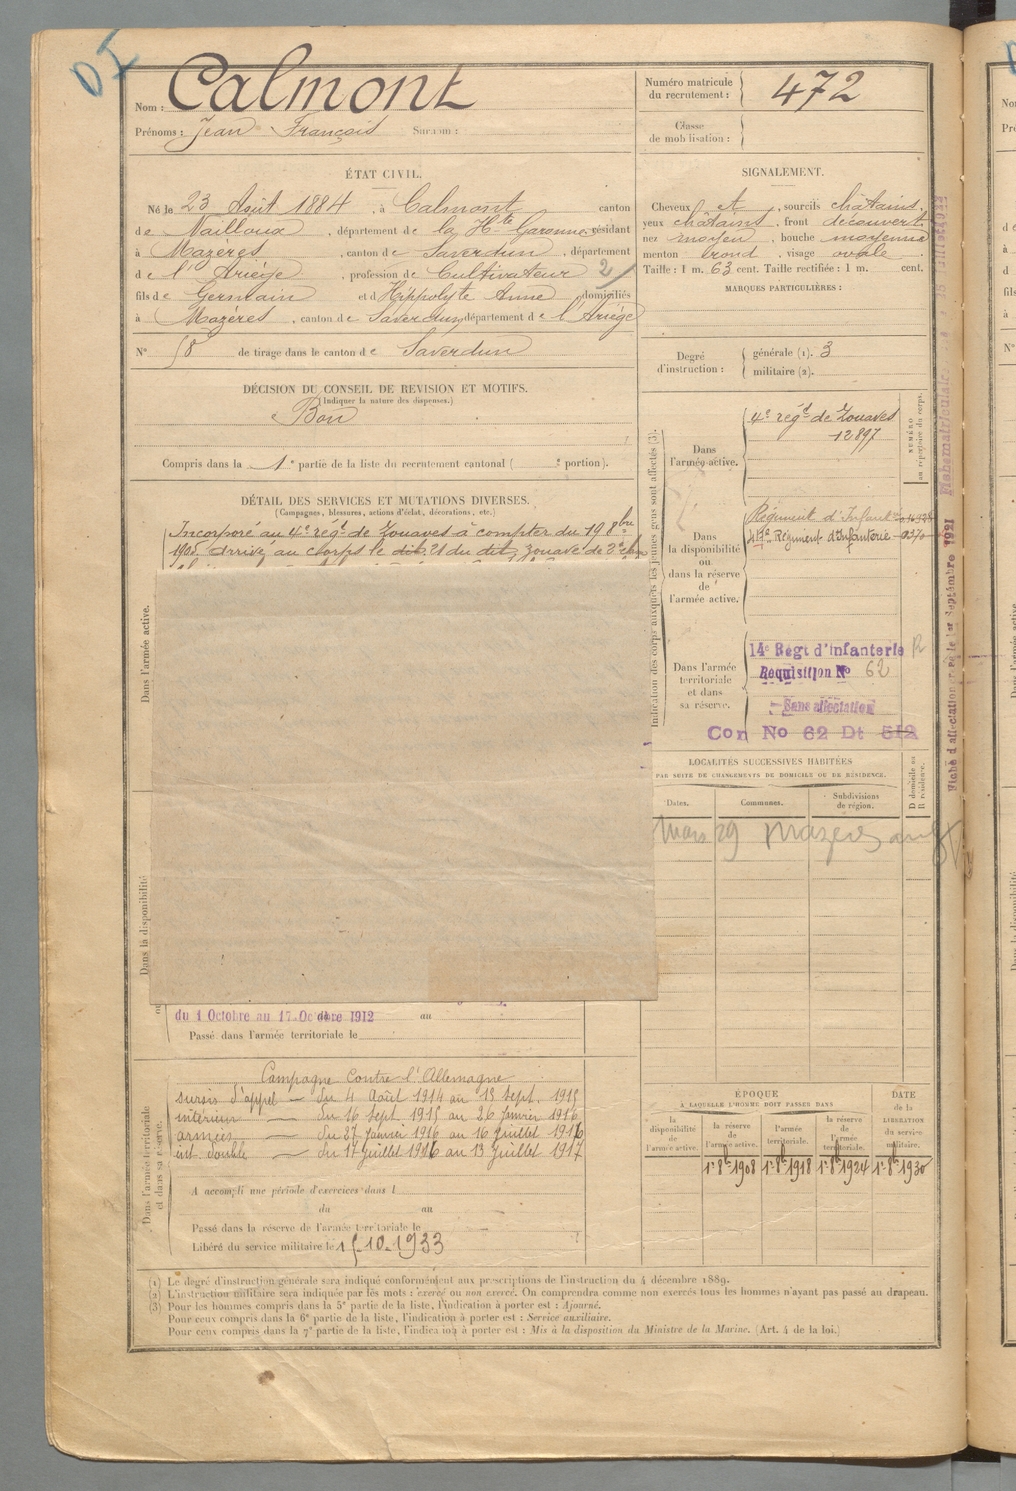 Nom : Calmont
Prénoms : Jean François Surnom :
Numéro matricule du recrutement : 472
Classe de mobilisation :
ÉTAT CIVIL.
Né le 23 Août 1884, à Calmont canton
de Nailloux, département de la Hte Garonne, résidant
à Mazères, canton de Saverdun, département
de l'Ariège, profession de Cultivateur
fils de Germain et d'Hippolyte Anne domiciliés
à Mazères, canton de Saverdun, département de l'Ariège
N° 58 de tirage dans le canton de Saverdun
SIGNALEMENT.
Cheveux et, sourcils châtains,
yeux châtains, front découvert,
nez moyen, bouche moyenne
menton rond, visage ovale
Taille : 1 m. 63 cent. Taille rectifiée : 1 m. cent.
MARQUES PARTICULIÈRES :
Degré d'instruction : générale (1). 3
militaire (2).
DÉCISION DU CONSEIL DE REVISION ET MOTIFS.
(Indiquer la nature des dispenses.)
Bon
Compris dans la 1e partie de la liste du recrutement cantonal ( e portion).
DÉTAIL DES SERVICES ET MUTATIONS DIVERSES.
(Campagnes, blessures, actions d'éclat, décorations, etc.)
Incorporé au 4e régt de Zouaves à compter du 19 8bre
1905, arrivé au corps le dit 21 du dit, zouave de 2e
Dans l'armée active.
Dans la disponibilité
du 1 Octobre au 17 Octobre 1912 au
Passé dans l'armée territoriale le
Indication des corps auxquels les jeunes gens sont affectés (3).
NUMÉRO au répertoire du corps.
Dans l'armée active.
4e régt de Zouaves
12897
Dans la disponibilité ou dans la réserve de l'armée active.
Régiment d'Infant
Régiment d'Infanterie
Dans l'armée territoriale et dans sa réserve.
14e Régt d'infanterie R
Requisition No 62
Sans affectation
Con No 62 Dt 512
LOCALITÉS SUCCESSIVES HABITÉES
PAR SUITE DE CHANGEMENTS DE DOMICILE OU DE RÉSIDENCE.
Dates. Communes. Subdivisions de région. D domicile ou R résidence.
Mars 29 Mazères
Dans l'armée territoriale et dans sa réserve.
Campagne contre l'Allemagne
sursis d'appel — du 4 Août 1914 au 15 Sept. 1915
intérieur — du 16 sept 1915 au 26 Janvier 1916
armées — du 27 Janvier 1916 au 16 Juillet 1916
int. double — du 17 Juillet 1916 au 13 Juillet 1917
A accompli une période d'exercices dans l
du au
Passé dans la réserve de l'armée territoriale le
Libéré du service militaire le 15-10-1933
ÉPOQUE
À LAQUELLE L'HOMME DOIT PASSER DANS
la disponibilité de l'armée active.
la réserve de l'armée active.
l'armée territoriale.
la réserve de l'armée territoriale.
DATE de la LIBÉRATION du service militaire.
1r 8bre 1908 1r 8bre 1918 1r 8bre 1924 1r 8bre 1930
(1) Le degré d'instruction générale sera indiqué conformément aux prescriptions de l'instruction du 4 décembre 1889.
(2) L'instruction militaire sera indiquée par les mots : exercé ou non exercé. On comprendra comme non exercés tous les hommes n'ayant pas passé au drapeau.
(3) Pour les hommes compris dans la 5e partie de la liste, l'indication à porter est : Ajourné.
Pour ceux compris dans la 6e partie de la liste, l'indication à porter est : Service auxiliaire.
Pour ceux compris dans la 7e partie de la liste, l'indication à porter est : Mis à la disposition du Ministre de la Marine. (Art. 4 de la loi.)